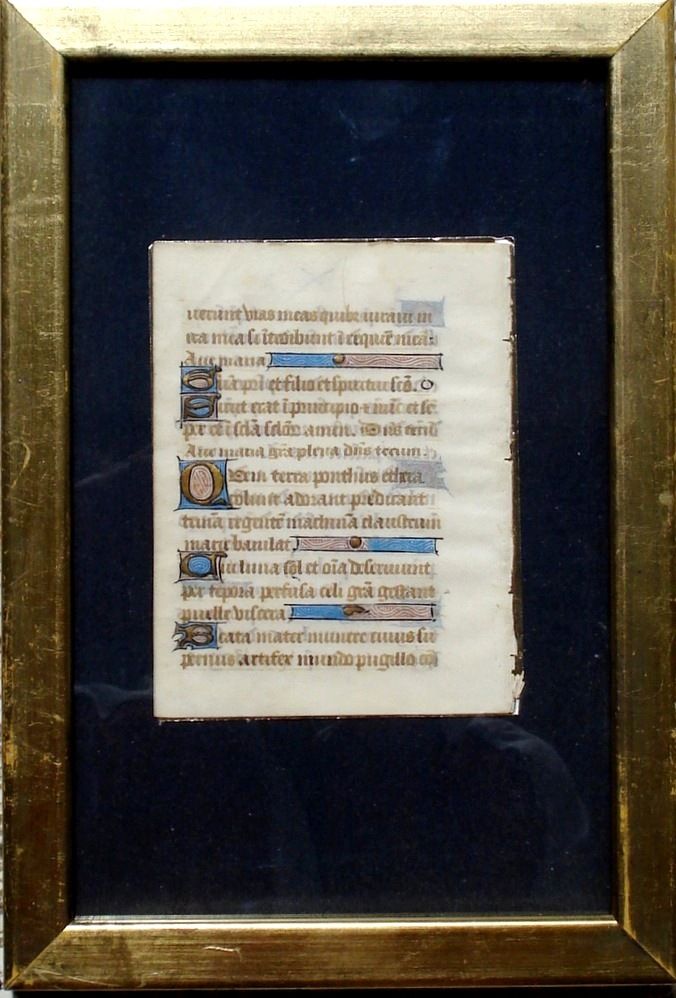 uerunt vias meas quibz iuraui in
ira mea si ītroibunt ī requiē meā.
Aue maria
Gl'ia pri et filio et spirituī scō. O
Sicut erat ī principio ⁊ nūc et sē
per et ī sclā sclor amen. Dn̄s tecū
Aue maria grā plena dn̄s tecum.
Quem terra ponthus ethera
colunt adorant predicant
trinā regentē machinā claustrum
marie baiulat
Cui luna sol et oīa deseruiunt
per tēpora perfusa celi grā gestant
puelle viscera
Beata mater munere cuius su
pernus artifex mundū pugillo